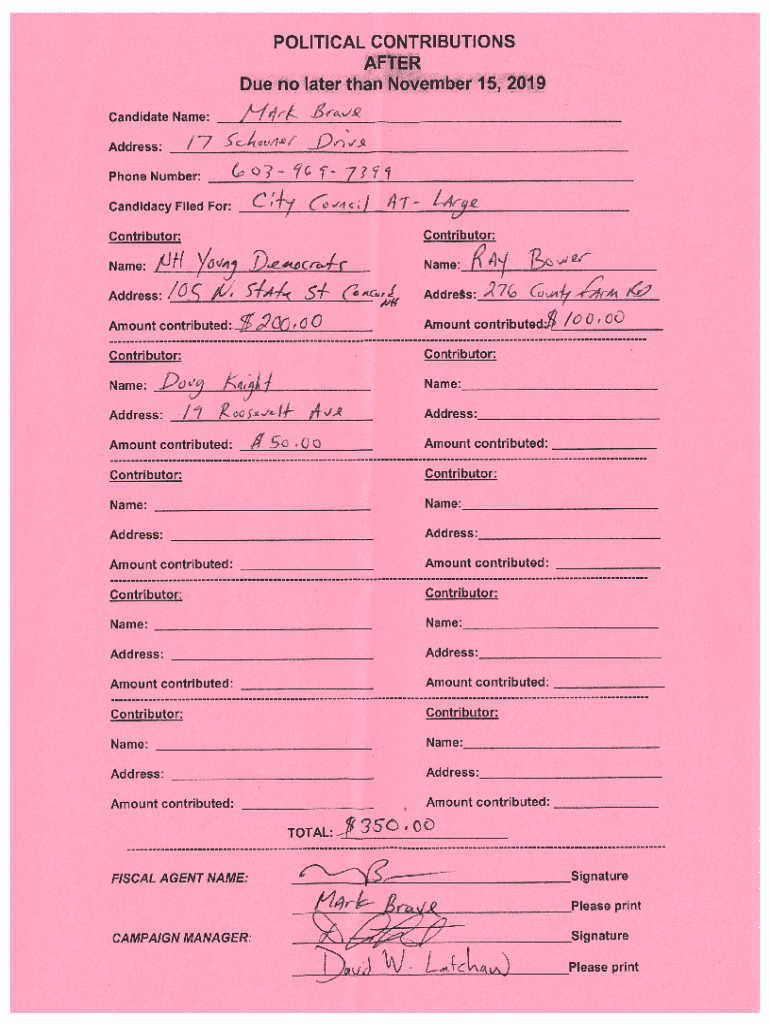 POLITICAL CONTRIBUTIONS
AFTER
Due no later than November 15, 2019
Candidate Name: Mark Brave
Address: 17 Schooner Drive
Phone Number: 603-969-7399
Candidacy Filed For: City Council AT-LArge
Contributor: Contributor:
Name: NH Young Democrats Name: RAY Bower
Address: 105 N. State St Concord NH Address: 276 County FArm Rd
Amount contributed: $200.00 Amount contributed: $100.00
Contributor: Contributor:
Name: Doug Knight Name:
Address: 19 Roosevelt Ave Address:
Amount contributed: $50.00 Amount contributed:
Contributor: Contributor:
Name: Name:
Address: Address:
Amount contributed: Amount contributed:
Contributor: Contributor:
Name: Name:
Address: Address:
Amount contributed: Amount contributed:
Contributor: Contributor:
Name: Name:
Address: Address:
Amount contributed: Amount contributed:
TOTAL: $350.00
FISCAL AGENT NAME: Signature
MArk Brave Please print
CAMPAIGN MANAGER: Signature
David W. Latchaw Please print